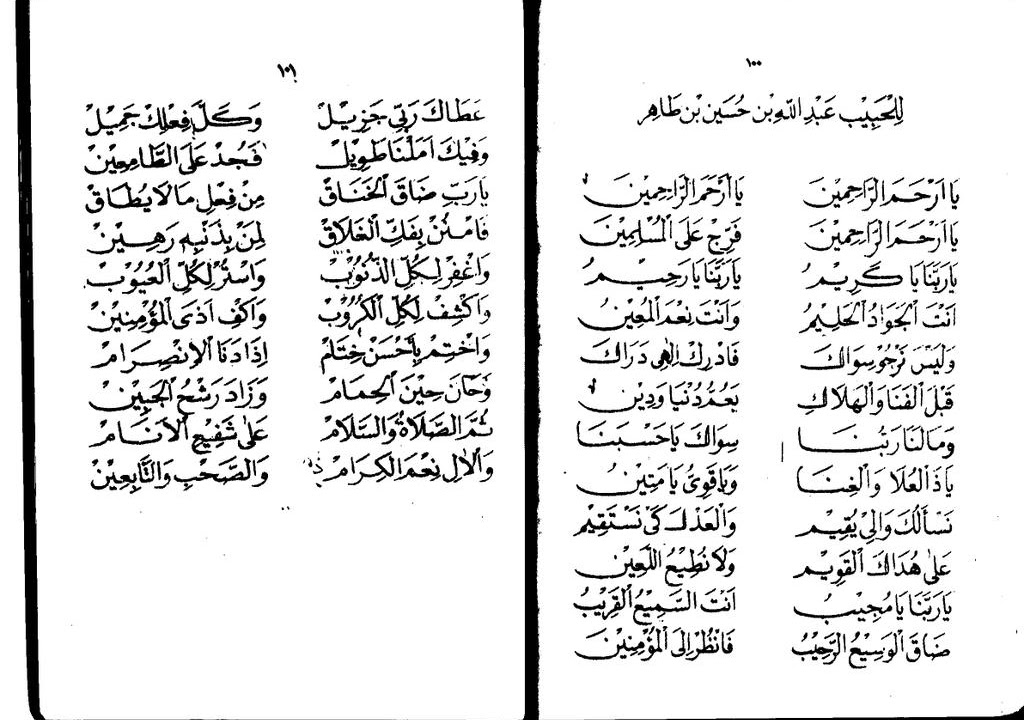 ١٠٠
لِلْحَبِيْب عَبْدِ اللّٰهِ بْن حُسَيْن بْن طَاهِر
يَا أَرْحَمَ الرَّاحِمِيْنَ يَا أَرْحَمَ الرَّاحِمِيْنَ
يَا أَرْحَمَ الرَّاحِمِيْنَ فَرِّجْ عَلَى الْمُسْلِمِيْنَ
يَا رَبَّنَا يَا كَرِيْمُ يَا رَبَّنَا يَا رَحِيْمُ
اَنْتَ الْجَوَادُ الْحَلِيْمُ وَاَنْتَ نِعْمَ الْمُعِيْنُ
وَلَيْسَ نَرْجُو سِوَاكَ فَادْرِكْ اِلٰهِي دَرَاكَ
قَبْلَ الْفَنَا وَالْهَلَاكِ يَعُمُّ دُنْيَا وَدِيْن
وَمَا لَنَا رَبَّنَا سِوَاكَ يَا حَسْبَنَا
يَا ذَا الْعُلَا وَالْغِنَا وَيَا قَوِيُّ يَا مَتِيْنُ
نَسْأَلُكَ وَالِيْ يُقِيْم وَالْعَدْلَ كَيْ نَسْتَقِيْم
عَلَى هُدَاكَ الْقَوِيْم وَلَا نُطِيْعُ اللَّعِيْن
يَا رَبَّنَا يَا مُجِيْبُ اَنْتَ السَّمِيْعُ الْقَرِيْبُ
ضَاقَ الْوَسِيْعُ الرَّحِيْبُ فَانْظُرْ اِلَى الْمُؤْمِنِيْنَ
١٠١
عَطَاكَ رَبِّي جَزِيْل وَكُلُّ فِعْلِكْ جَمِيْل
وَفِيْكَ اَمَلْنَا طَوِيْل فَجُدْ عَلَى الطَّامِعِيْن
يَا رَبِّ ضَاقَ الْخَنَاق مِنْ فِعْلِ مَا لَا يُطَاق
فَامْنُنْ بِفَكِّ الْغَلَاق لِمَنْ بِذَنْبِه رَهِيْن
وَاغْفِرْ لِكُلِّ الذُّنُوْب وَاسْتُرْ لِكُلِّ الْعُيُوْب
وَاكْشِفْ لِكُلِّ الْكُرُوْب وَاكْفِ اَذَى الْمُؤْمِنِيْن
وَاخْتِمْ بِأَحْسَنْ خِتَام اِذَا دَنَا الْاِنْصِرَام
وَحَانَ حِيْنَ الْحِمَام وَزَادَ رَشْحُ الْجَبِيْن
ثُمَّ الصَّلَاةُ وَالسَّلَام عَلَى شَفِيْعِ الْاَنَام
وَالْاٰلِ نِعْمَ الْكِرَام وَالصَّحْبِ وَالتَّابِعِيْن